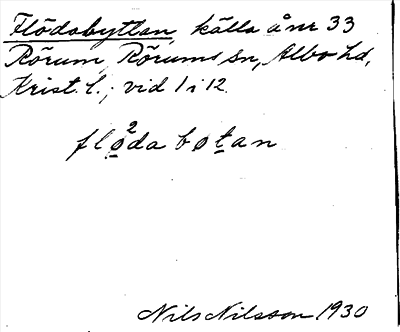 Flödabyttan, källa å nr 33
Rörum, Rörums sn, Albo hd,
Krist. l.; vid 1 i 12.
flo²da bøtan
Nils Nilsson 1930